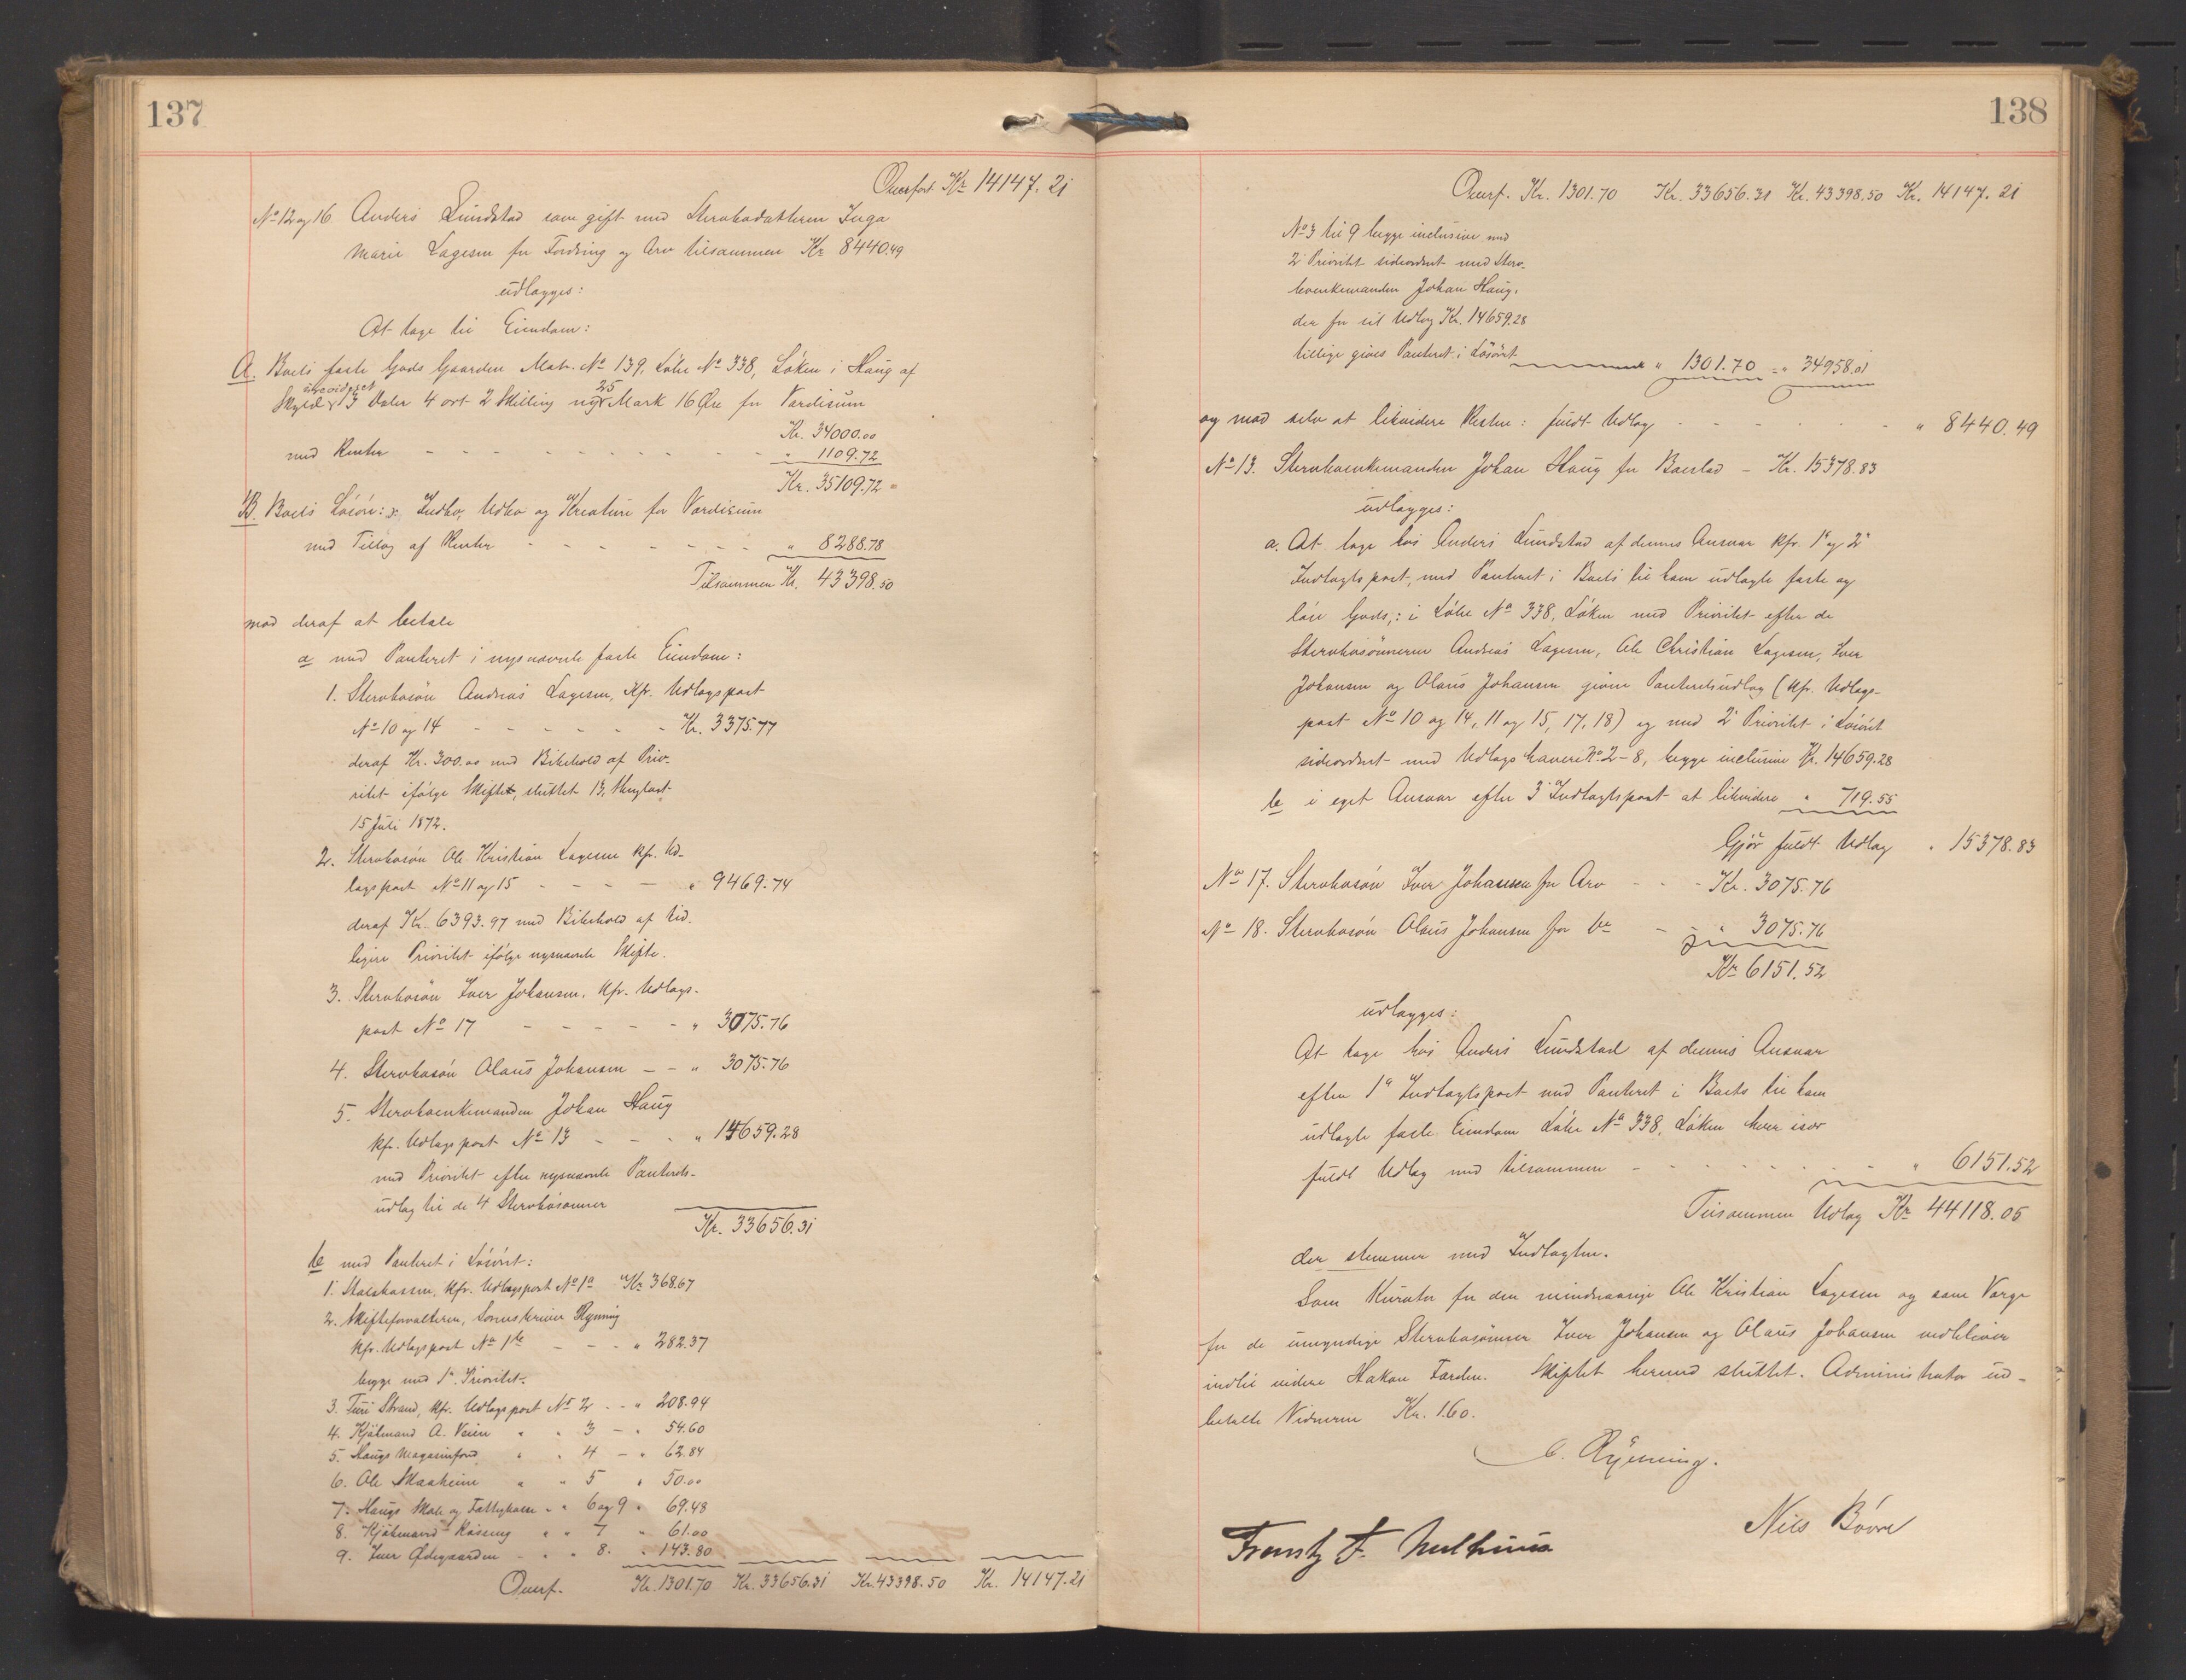 137
Overført Kr 14147.21
No 12 og 16. Anders Lundstad som gift med Stervbodatteren Inga
Marie Lagesen for Fordring og Arv tilsammen Kr 8440.49
udlægges:
At tage til Eiendom:
A. Boets faste Gods Gaarden Matr. No 139, Løbe No 338, Løken i Haug af
Skyld urevideret 3 Daler 4 ort 2 Skilling ny 25 Mark 16 Øre for Værdisum
Kr. 34000.00
med Renter - - - " 1109.72
Kr. 35109.72
B. Boets Løsøre: Indbo, Udbo og Kreature for Værdisum
med Tillæg af Renter - - - " 8288.78
Tilsammen Kr. 43398.50
mod deraf at betale
a med Panteret i nysnævnte faste Eiendom:
1. Stervbosøn Andreas Lagesen, kfr. Udlægspost
No 10 og 14 - - - Kr. 3375.77
deraf Kr. 300.00 med Bibehold af Prio-
ritet ifølge Skifte, sluttet 13, thinglæst
15 Juli 1872.
2. Stervbosøn Ole Kristian Lagesen kfr. Ud-
lægspost No 11 og 15 - - - " 9469.74
deraf Kr. 6393.97 med Bibehold af tid-
ligere Prioritet ifølge nysnævnte Skifte.
3. Stervbosøn Iver Johansen, kfr. Udlægs-
post No 17 - - - " 3075.76
4. Stervbosøn Olaus Johansen - - " 3075.76
5. Stervboenkemanden Johan Haug
kfr. Udlægspost No 13 - - - " 14659.28
med Prioritet efter nysnævnte Panterets-
udlæg til de 4 Stervbosønner
Kr. 33656.31
b med Panteret i Løsøret:
1. Statskassen, kfr. Udlægspost No 1a Kr. 368.67
2. Skifteforvalteren, Sorenskriver Rynning
kfr. Udlægspost No 1b - - - " 282.37
begge med 1ste Prioritet.
3. Turi Strand, kfr. Udlægspost No 2 - - " 208.94
4. Kjøbmand A. Veien " " 3 - " 54.60
5. Haugs Magasinfond " " 4 - " 62.84
6. Ole Skaaheim " " 5 " 50.00
7. Haugs Skole og Fattigkasse " " 6 og 9 " 69.48
8. Kjøbmand " " 7 " 61.00
9. Iver Ødegaarden - " " 8. " 143.80
Overf. Kr. 1301.70 Kr. 33656.31 Kr. 43398.50 Kr. 14147.21
138
Overf. Kr. 1301.70 Kr. 33656.31 Kr. 43398.50 Kr. 14147.21
No 3 til 9 begge inclusive med
2' Prioritet sideordnet med Sterv-
boenkemanden Johan Haug,
der for sit Udlæg Kr. 14659.28
tillige gives Panteret i Løsøret " 1301.70 = " 34958.01
og mod selv at likvidere Resten: fuldt Udlæg - - - " 8440.49
No 13. Stervboenkemanden Johan Haug for Boeslod - Kr. 15378.83
udlægges:
a. At tage hos Anders Lundstad af dennes Ansvar kfr. 1' og 2'
Indtægtspost, med Panteret i Boets til ham udlagte faste og
løse Gods,: i Løbe No 338, Løken med Prioritet efter de
Stervbosønnerne Andreas Lagesen, Ole Christian Lagesen, Iver
Johansen og Olaus Johansen givne Panteretsudlæg (kfr. Udlægs-
post No 10 og 14, 11 og 15, 17, 18) og med 2' Prioritet i Løsøret
sideordnet med Udlægshavere No 2-8, begge inclusive Kr. 14659.28
b i eget Ansvar efter 3' Indtægtspost at likvidere " 719.55
Gjør fuldt Udlæg " 15378.83
No 17. Stervbosøn Iver Johansen for Arv - - - Kr. 3075.76
No 18. Stervbosøn Olaus Johansen for do - - " 3075.76
Kr 6151.52
udlægges:
At tage hos Anders Lundstad af dennes Ansvar
efter 1' Indtægtspost med Panteret i Boets til ham
udlagte faste Eiendom Løbe No 338, Løken hver især
fuldt Udlæg med tilsammen - - - " 6151.52
Tilsammen Udlæg Kr 44118.05
der stemmer med Indtægten.
Som Kurator for den mindreaarige Ole Kristian Lagesen og som Værge
for de umyndige Stervbosønner Iver Johansen og Olaus Johansen vedbliver
indtil videre Hakon Færden. Skiftet hermed sluttet. Administrator ud-
betalte Vidnerne Kr. 1.60.
C. Rynning.
Nils Bøvre
Frants F.